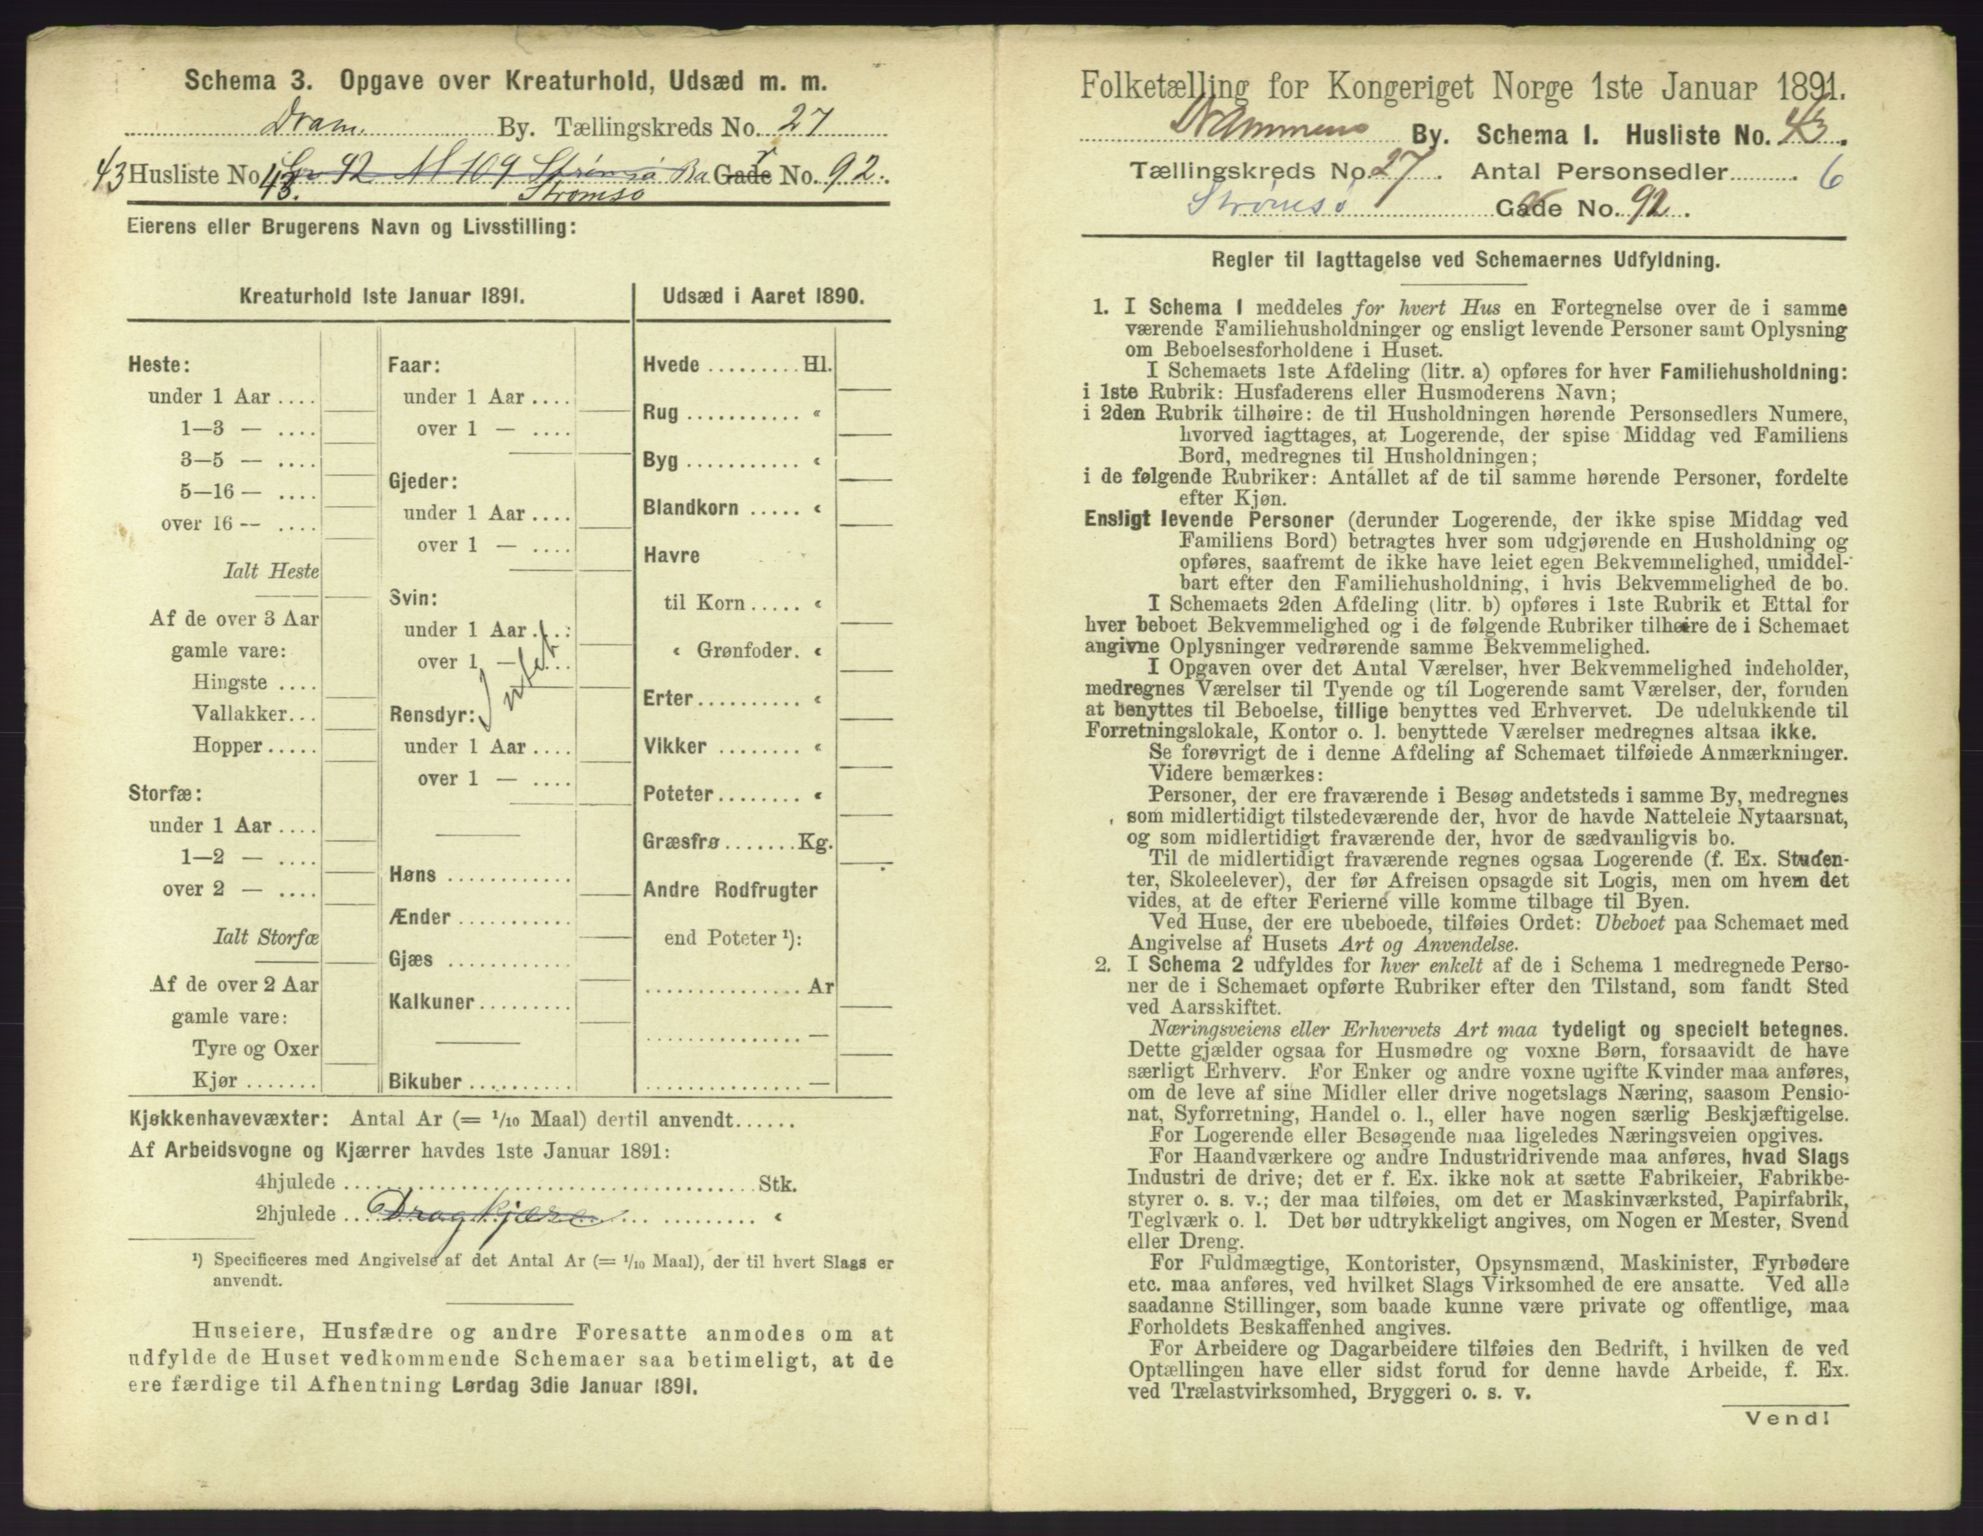 Schema 3. Opgave over Kreaturhold, Udsæd m. m.
Dram. By. Tællingskreds No. 27
43 Husliste No. 43. Gr 92 M 109 Strømsø Gade No. 92.
Strømsø
Eierens eller Brugerens Navn og Livsstilling:
Kreaturhold 1ste Januar 1891.
Heste:
under 1 Aar ....
1—3 — ....
3—5 — ....
5—16 — ....
over 16 — ....
Ialt Heste
Af de over 3 Aar
gamle vare:
Hingste ....
Vallakker...
Hopper.....
Storfæ:
under 1 Aar ....
1—2 — ....
over 2 — ....
Ialt Storfæ
Af de over 2 Aar
gamle vare:
Tyre og Oxer
Kjør .......
Faar:
under 1 Aar ....
over 1 — ....
Gjeder:
under 1 Aar ....
over 1 — ....
Svin:
under 1 Aar ....
over 1 — ....
Intet
Rensdyr:
under 1 Aar ....
over 1 — ....
Høns ............
Ænder ...........
Gjæs ............
Kalkuner.........
Bikuber ..........
Udsæd i Aaret 1890.
Hvede ......... Hl.
Rug ........... «
Byg ........... «
Blandkorn ..... «
Havre
til Korn ..... «
« Grønfoder. «
Erter .......... «
Vikker ......... «
Poteter ........ «
Græsfrø ....... Kg.
Andre Rodfrugter
end Poteter ¹):
............... Ar
............... —
............... —
Kjøkkenhavevæxter: Antal Ar (= 1/10 Maal) dertil anvendt......
Af Arbeidsvogne og Kjærrer havdes 1ste Januar 1891:
4hjulede ........................................ Stk.
2hjulede ... Dragkjære ......... «
¹) Specificeres med Angivelse af det Antal Ar (= 1/10 Maal), der til hvert Slags er
anvendt.
Huseiere, Husfædre og andre Foresatte anmodes om at
udfylde de Huset vedkommende Schemaer saa betimeligt, at de
ere færdige til Afhentning Lørdag 3die Januar 1891.
Folketælling for Kongeriget Norge 1ste Januar 1891.
Drammens By. Schema 1. Husliste No. 43.
Tællingskreds No. 27. Antal Personsedler ......... 6
Strømsø Gade No. 92.
Regler til Iagttagelse ved Schemaernes Udfyldning.
1. I Schema 1 meddeles for hvert Hus en Fortegnelse over de i samme
værende Familiehusholdninger og ensligt levende Personer samt Oplysning
om Beboelsesforholdene i Huset.
I Schemaets 1ste Afdeling (litr. a) opføres for hver Familiehusholdning:
i 1ste Rubrik: Husfaderens eller Husmoderens Navn;
i 2den Rubrik tilhøire: de til Husholdningen hørende Personsedlers Numere,
hvorved iagttages, at Logerende, der spise Middag ved Familiens
Bord, medregnes til Husholdningen;
i de følgende Rubriker: Antallet af de til samme hørende Personer, fordelte
efter Kjøn.
Ensligt levende Personer (derunder Logerende, der ikke spise Middag ved
Familiens Bord) betragtes hver som udgjørende en Husholdning og
opføres, saafremt de ikke have leiet egen Bekvemmelighed, umiddel-
bart efter den Familiehusholdning, i hvis Bekvemmelighed de bo.
I Schemaets 2den Afdeling (litr. b) opføres i 1ste Rubrik et Ettal for
hver beboet Bekvemmelighed og i de følgende Rubriker tilhøire de i Schemaet
angivne Oplysninger vedrørende samme Bekvemmelighed.
I Opgaven over det Antal Værelser, hver Bekvemmelighed indeholder,
medregnes Værelser til Tyende og til Logerende samt Værelser, der, foruden
at benyttes til Beboelse, tillige benyttes ved Erhvervet. De udelukkende til
Forretningslokale, Kontor o. l. benyttede Værelser medregnes altsaa ikke.
Se forøvrigt de i denne Afdeling af Schemaet tilføiede Anmærkninger.
Videre bemærkes:
Personer, der ere fraværende i Besøg andetsteds i samme By, medregnes
som midlertidigt tilstedeværende der, hvor de havde Natteleie Nytaarsnat,
og som midlertidigt fraværende der, hvor de sædvanligvis bo.
Til de midlertidigt fraværende regnes ogsaa Logerende (f. Ex. Studen-
ter, Skoleelever), der før Afreisen opsagde sit Logis, men om hvem det
vides, at de efter Ferierne ville komme tilbage til Byen.
Ved Huse, der ere ubeboede, tilføies Ordet: Ubeboet paa Schemaet med
Angivelse af Husets Art og Anvendelse.
2. I Schema 2 udfyldes for hver enkelt af de i Schema 1 medregnede Perso-
ner de i Schemaet opførte Rubriker efter den Tilstand, som fandt Sted
ved Aarsskiftet.
Næringsveiens eller Erhvervets Art maa tydeligt og specielt betegnes.
Dette gjælder ogsaa for Husmødre og voxne Børn, forsaavidt de have
særligt Erhverv. For Enker og andre voxne ugifte Kvinder maa anføres,
om de leve af sine Midler eller drive nogetslags Næring, saasom Pensio-
nat, Syforretning, Handel o. l., eller have nogen særlig Beskjæftigelse.
For Logerende eller Besøgende maa ligeledes Næringsveien opgives.
For Haandværkere og andre Industridrivende maa anføres, hvad Slags
Industri de drive; det er f. Ex. ikke nok at sætte Fabrikeier, Fabrikbe-
styrer o. s. v.; der maa tilføies, om det er Maskinværksted, Papirfabrik,
Teglværk o. l. Det bør udtrykkeligt angives, om Nogen er Mester, Svend
eller Dreng.
For Fuldmægtige, Kontorister, Opsynsmænd, Maskinister, Fyrbødere
etc. maa anføres, ved hvilket Slags Virksomhed de ere ansatte. Ved alle
saadanne Stillinger, som baade kunne være private og offentlige, maa
Forholdets Beskaffenhed angives.
For Arbeidere og Dagarbeidere tilføies den Bedrift, i hvilken de ved
Optællingen have eller sidst forud for denne havde Arbeide, f. Ex.
ved Trælastvirksomhed, Bryggeri o. s. v.
Vend!